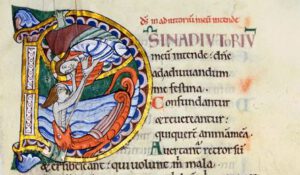 Dś in adiutoriū meū intende
D S IN ADIVTORIŪ
meū intende: dñe
ad adiuuandum
me festina.
Confundantur
& reuereantur:
qui querunt animā meā
Auertant̄ retrorsū
& erubescant: qui uolunt m̄ mala